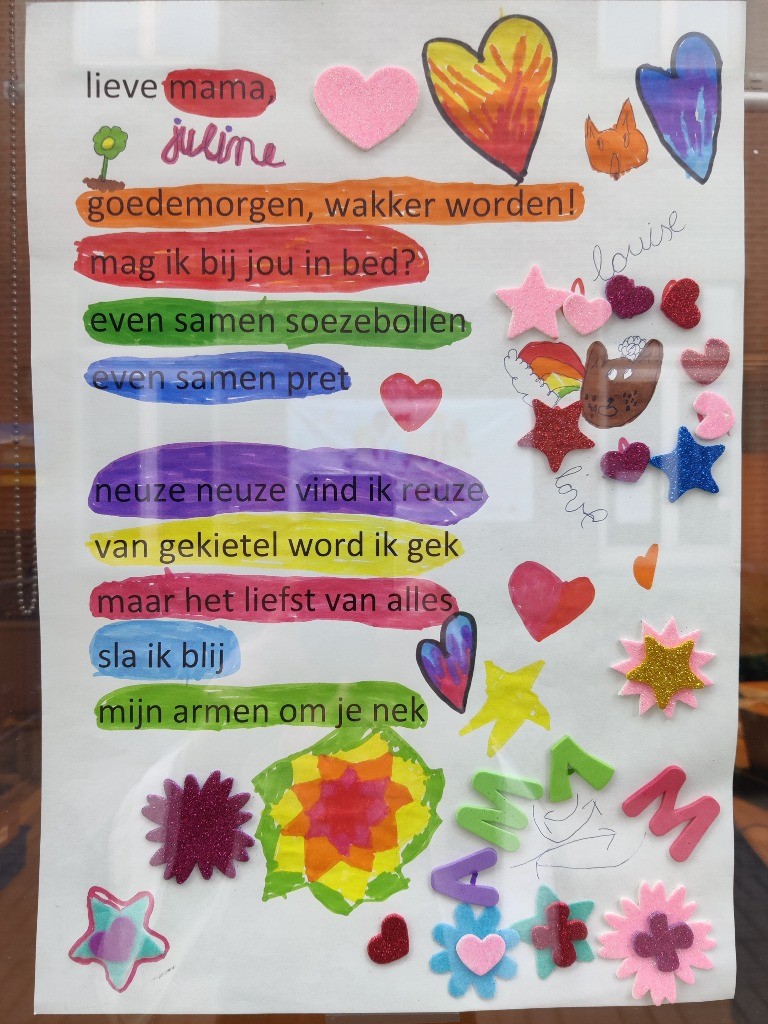 lieve mama,
juline
goedemorgen, wakker worden!
mag ik bij jou in bed?
louise
even samen soezebollen
even samen pret
love
neuze neuze vind ik reuze
van gekietel word ik gek
maar het liefst van alles
sla ik blij
mijn armen om je nek
M A M
A